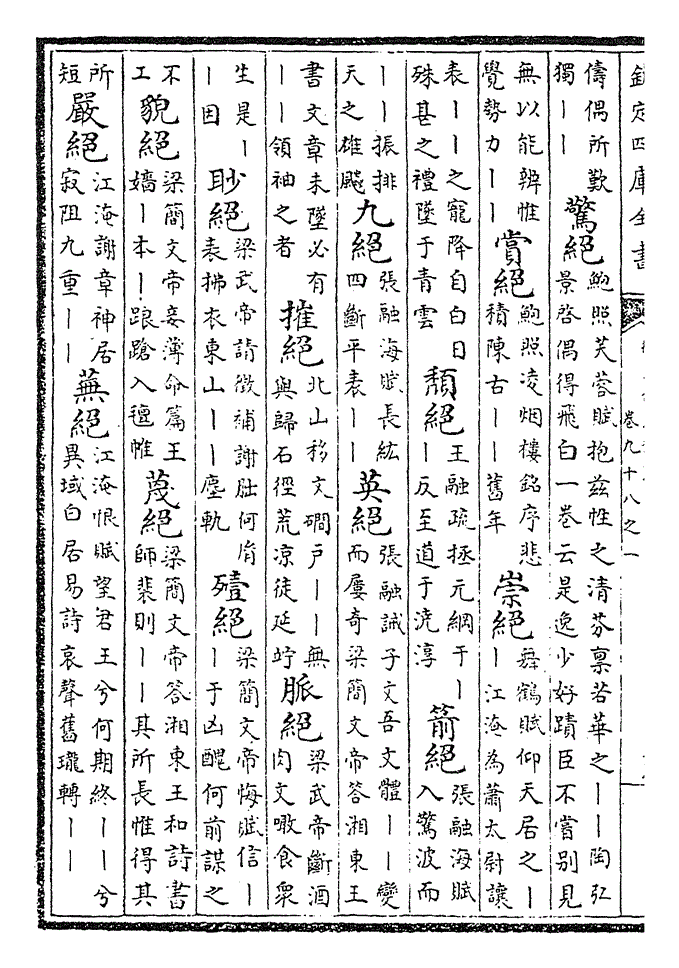 欽定四庫全書
卷九十八之一
儔偶所歎獨丨丨 驚絕 鮑照芙蓉賦抱茲性之清芬禀若華之丨丨陶弘景啓偶得飛白一卷云是逸少好蹟臣不嘗別見
無以能韓惟覺勢力丨丨 賞絕 鮑照凌烟樓銘序悲積陳古丨丨舊年 崇絕 舞鶴賦仰天居之丨丨江淹為蕭太尉讓
表丨丨之寵降自白日殊甚之禮墜于青雲 頽絕 王融疏拯元綱于丨丨反至道于澆淳 箭絕 張融海賦入驚波而
丨丨振排天之雄飈 九絕 張融海賦長紘四斷平表丨丨 英絕 張融誡子文吾文體丨丨變而屢奇梁簡文帝答湘東王
書文章未墜必有丨丨領袖之者 摧絕 北山移文磵戶丨丨無與歸石徑荒凉徒延竚 脈絕 梁武帝斷酒肉文噉食衆
生是丨丨因 眇絕 梁武帝請徵補謝朏何胤表拂衣東山丨丨塵軌 殪絕 梁簡文帝悔賦信丨丨于凶醜何前謀之
不工 貌絕 梁簡文帝妾薄命篇王嬙丨本丨踉蹌入氊帷 蔑絕 梁簡文帝答湘東王和詩書師裴則丨丨其所長惟得其
所短 嚴絕 江淹謝章神居寂阻九重丨丨 蕪絕 江淹恨賦望君王兮何期終丨丨兮異域白居易詩哀聲舊瓏轉丨丨